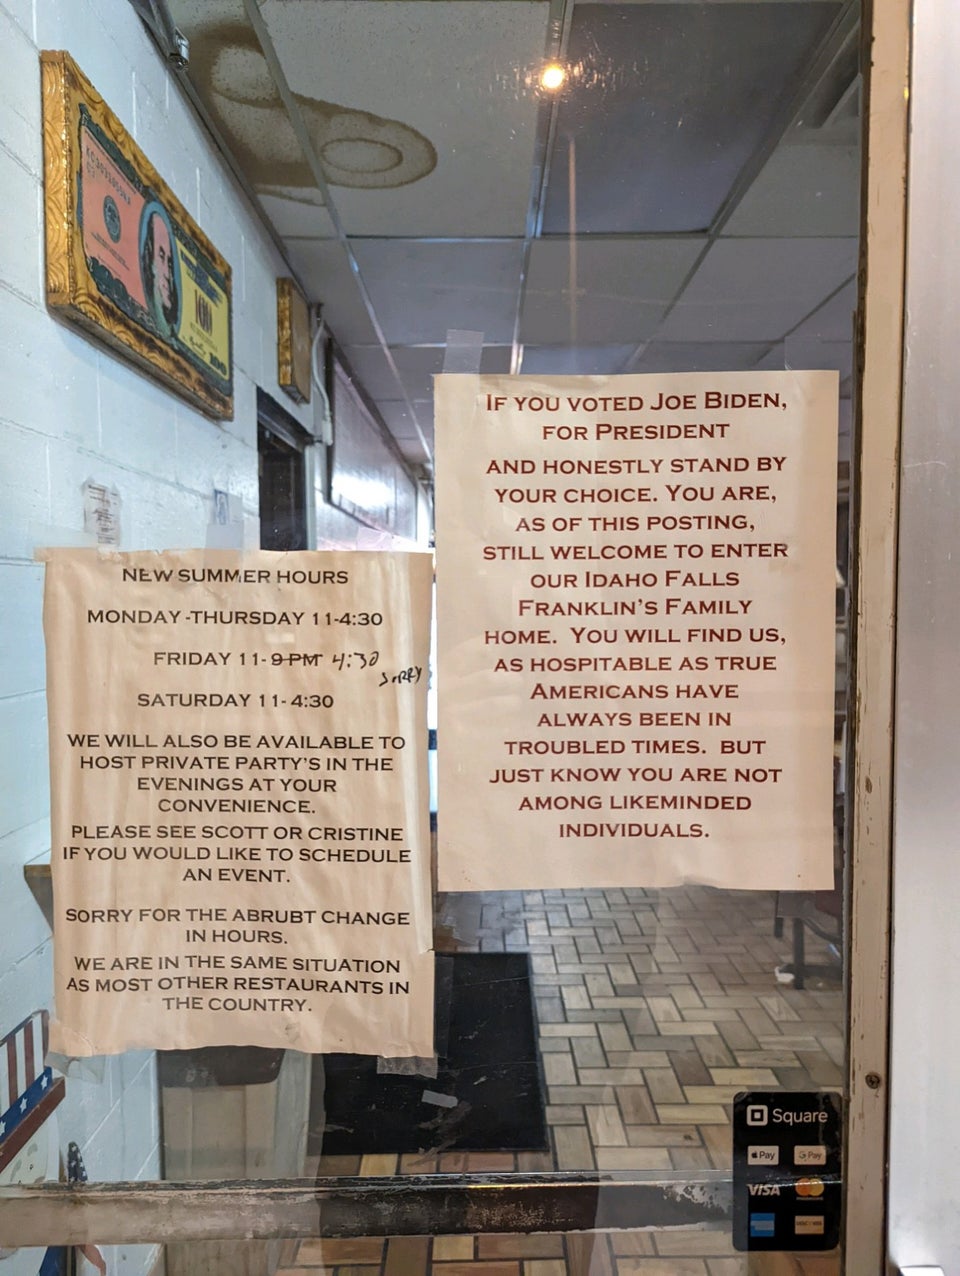 NEW SUMMER HOURS
MONDAY -THURSDAY 11-4:30
FRIDAY 11- 9 PM 4:30
SORRY
SATURDAY 11- 4:30
WE WILL ALSO BE AVAILABLE TO
HOST PRIVATE PARTY'S IN THE
EVENINGS AT YOUR
CONVENIENCE.
PLEASE SEE SCOTT OR CRISTINE
IF YOU WOULD LIKE TO SCHEDULE
AN EVENT.
SORRY FOR THE ABRUBT CHANGE
IN HOURS.
WE ARE IN THE SAME SITUATION
AS MOST OTHER RESTAURANTS IN
THE COUNTRY.
IF YOU VOTED JOE BIDEN,
FOR PRESIDENT
AND HONESTLY STAND BY
YOUR CHOICE. YOU ARE,
AS OF THIS POSTING,
STILL WELCOME TO ENTER
OUR IDAHO FALLS
FRANKLIN'S FAMILY
HOME. YOU WILL FIND US,
AS HOSPITABLE AS TRUE
AMERICANS HAVE
ALWAYS BEEN IN
TROUBLED TIMES. BUT
JUST KNOW YOU ARE NOT
AMONG LIKEMINDED
INDIVIDUALS.
100
100
Square
Pay
G Pay
VISA